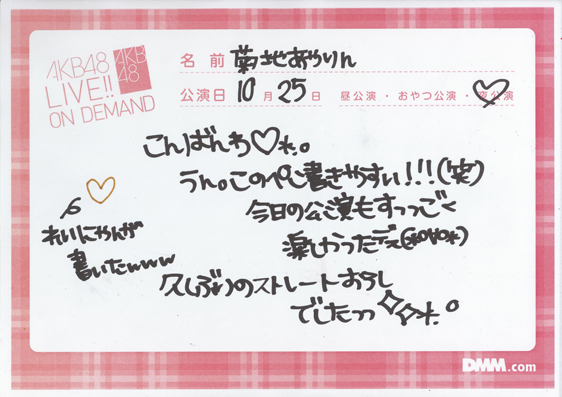 AKB48
LIVE!!
ON DEMAND
AKB
48
名前 菊地あやりん
公演日 10月25日 昼公演・おやつ公演・夜公演
こんばんわ♡
うん。このペン書きやすい!!!(笑)
今日の公演もすっっごく
楽しかったデス(*o∀o*)
久しぶりのストレートおろし
でしたっっ
れいにゃんが
書いたwww
DMM.com